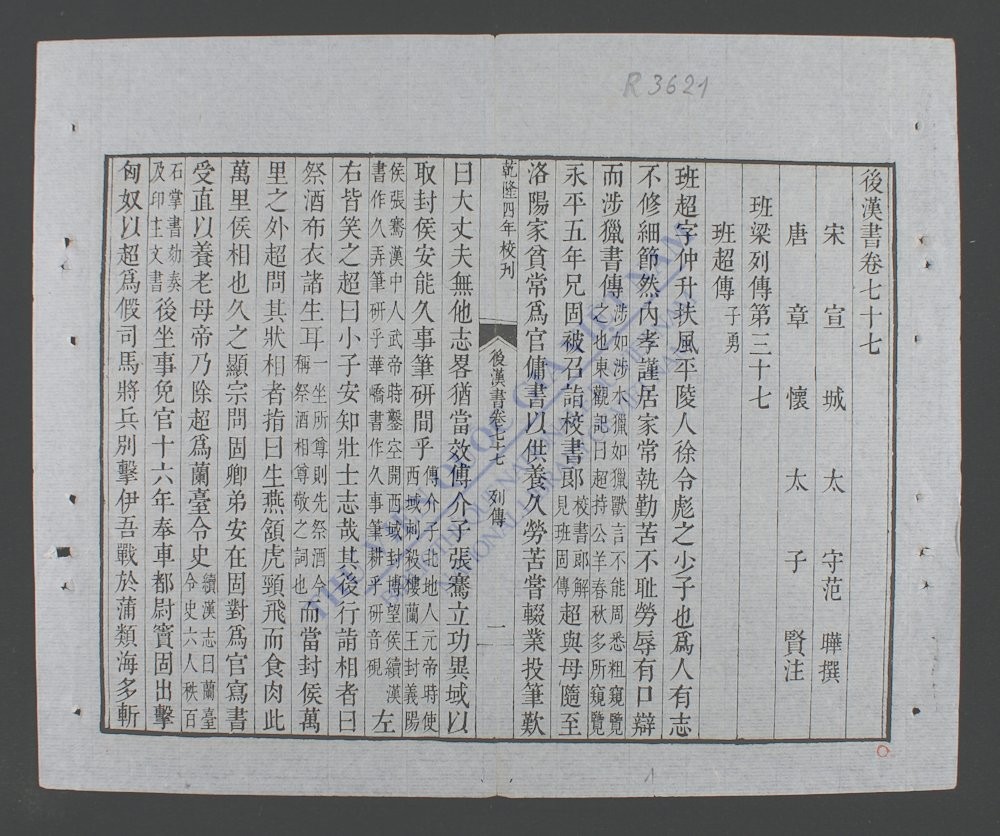 R 3621
後漢書卷七十七
宋宣城太守范曄撰
唐章懷太子賢注
班梁列傳第三十七
班超傳子勇
班超字仲升扶風平陵人徐令彪之少子也爲人有志
不修細節然內孝謹居家常執勤苦不耻勞辱有口辯
而涉獵書傳涉如涉水獵如獵獸言不能周悉粗窺覽之也東觀記曰超持公羊春秋多所窺覽
永平五年兄固被召詣校書郎校書郎解見班固傳超與母隨至
洛陽家貧常爲官傭書以供養久勞苦嘗輟業投筆歎
乾隆四年校刊
後漢書卷七十七 列傳
一
曰大丈夫無他志畧猶當效傅介子張騫立功異域以
取封侯安能久事筆研間乎傅介子北地人元帝時使西域刺殺樓蘭王封義陽
侯張騫漢中人武帝時鑿空開西域封博望侯續漢書作久弄筆研乎華嶠書作久事筆耕乎研音硯左
右皆笑之超曰小子安知壯士志哉其後行詣相者曰
祭酒布衣諸生耳一坐所尊則先祭酒今稱祭酒相尊敬之詞也而當封侯萬
里之外超問其狀相者指曰生燕頷虎頸飛而食肉此
萬里侯相也久之顯宗問固卿弟安在固對爲官寫書
受直以養老母帝乃除超爲蘭臺令史續漢志曰蘭臺令史六人秩百
石掌書劾奏及印主文書後坐事免官十六年奉車都尉竇固出擊
匈奴以超爲假司馬將兵別擊伊吾戰於蒲類海多斬
1